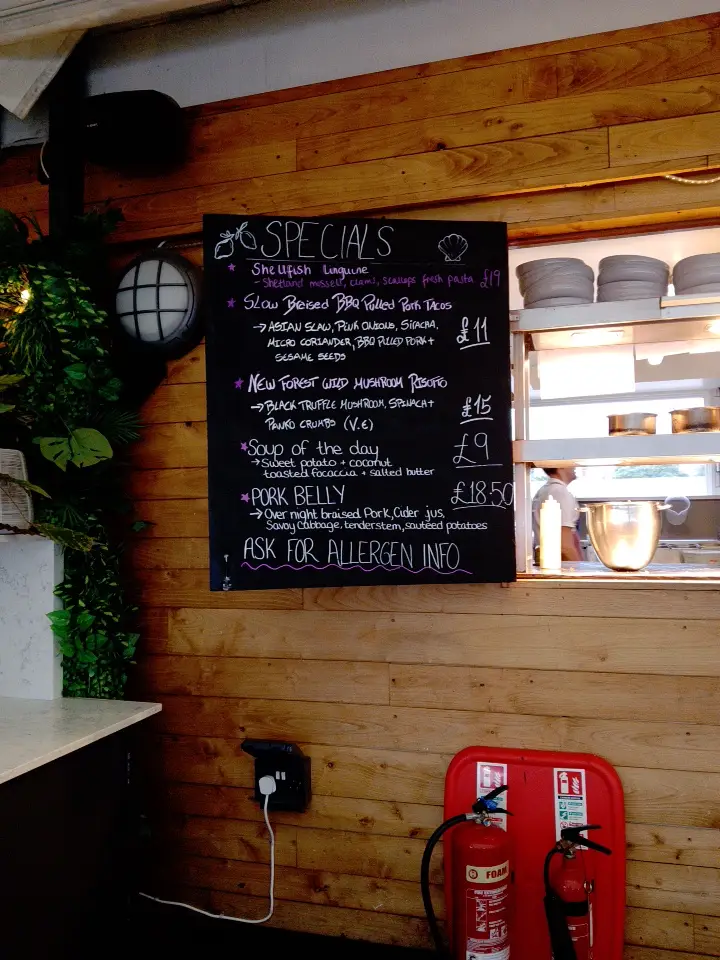 SPECIALS
Shellfish Linguine
- Shetland mussels, clams, scallops fresh pasta £19
Slow Breised BBQ Pulled Pork Tacos
→ ASIAN SLAW, PINK ONIONS, SIRACHA, £11
MICRO CORIANDER, BBQ PULLED PORK +
SESAME SEEDS
NEW FOREST WILD MUSHROOM RISOTTO
→ BLACK TRUFFLE MUSHROOM, SPINACH + £15
PANKO CRUMBS (V.E)
Soup of the day £9
→ Sweet potato + coconut
toasted focaccia + salted butter
PORK BELLY £18.50
→ Over night braised Pork, Cider jus,
Savoy Cabbage, tenderstem, sauteed potatoes
ASK FOR ALLERGEN INFO
FOAM